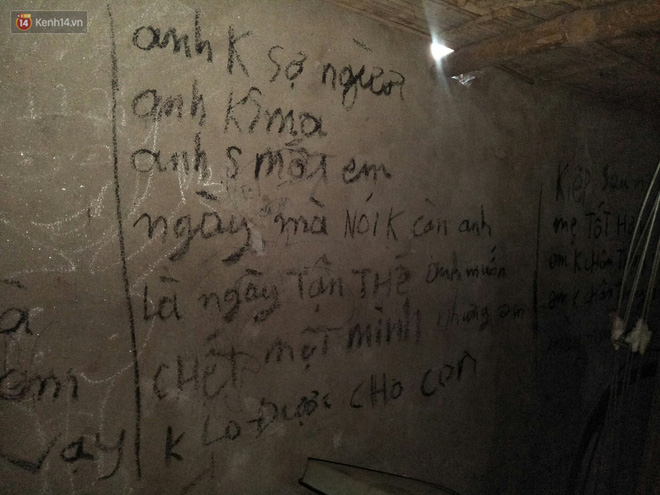 14 Kenh14.vn
anh K sợ người
anh KS ma
anh S mất em
ngày mà NÓI K cần anh
Là ngày TẬN THẾ anh muốn
CHẾT MỘT MÌNH nhưng em
K Lo Được CHO CON
à
em
vậy
Kiếp sau
mẹ TỐT
em K